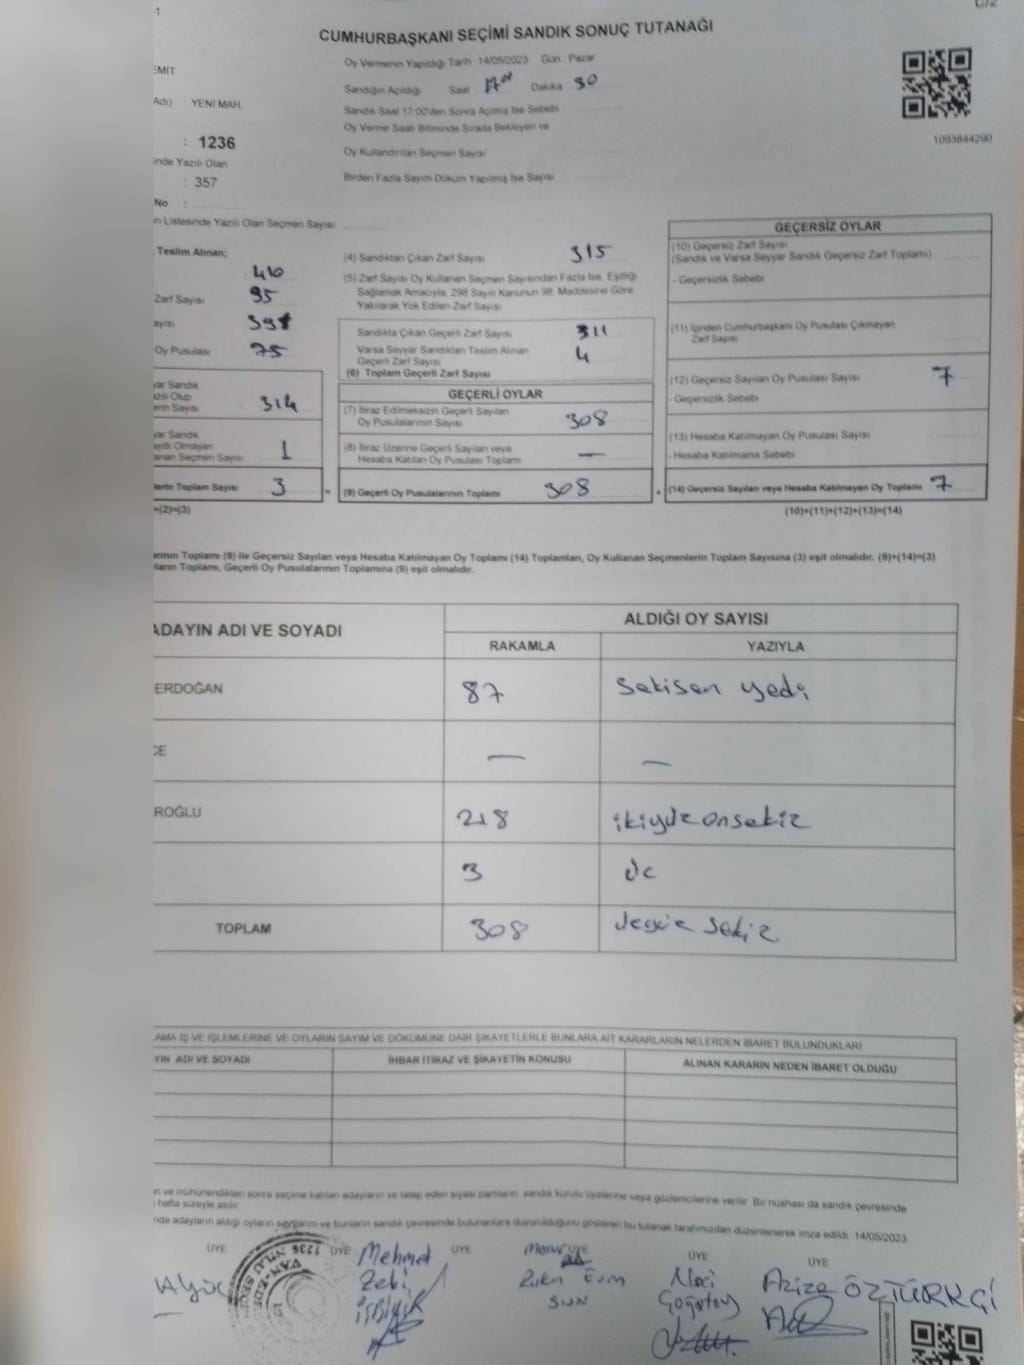 CUMHURBAŞKANI SEÇİMİ SANDIK SONUÇ TUTANAĞI
EMİT
Adı) : YENİ MAH
: 1236
inde Yazılı Olan
: 357
No :
Oy Vermenin Yapıldığı Tarih :14/05/2023 Gün : Pazar
Sandığın Açıldığı Saat : 17⁰⁰ Dakika 30
Sandık Saat 17:00'den Sonra Açılmış İse Sebebi
Oy Verme Saati Bitiminde Sırada Bekleyen ve
Oy Kullandırılan Seçmen Sayısı
Birden Fazla Sayım Döküm Yapılmış İse Sayısı
1093844290
n Listesinde Yazılı Olan Seçmen Sayısı
Teslim Alınan;
410
Zarf Sayısı 95
ayısı
Oy Pusulası 75
yar Sandık
zılı Olup
erin Sayısı 314
yar Sandık
ayıtlı Olmayan
anan Seçmen Sayısı 1
lerin Toplam Sayısı 3
+(2)=(3)
(4) Sandıktan Çıkan Zarf Sayısı 315
(5) Zarf Sayısı Oy Kullanan Seçmen Sayısından Fazla İse, Eşitliği
Sağlamak Amacıyla, 298 Sayılı Kanunun 98. Maddesine Göre
Yakılarak Yok Edilen Zarf Sayısı
Sandıkta Çıkan Geçerli Zarf Sayısı 311
Varsa Seyyar Sandıktan Teslim Alınan
Geçerli Zarf Sayısı 4
(6) Toplam Geçerli Zarf Sayısı
GEÇERLİ OYLAR
(7) İtiraz Edilmeksizin Geçerli Sayılan
Oy Pusulalarının Sayısı 308
(8) İtiraz Üzerine Geçerli Sayılan veya
Hesaba Katılan Oy Pusulası Toplamı —
= (9) Geçerli Oy Pusulalarının Toplamı 308
GEÇERSİZ OYLAR
(10) Geçersiz Zarf Sayısı
(Sandık ve Varsa Seyyar Sandık Geçersiz Zarf Toplamı)
- Geçersizlik Sebebi
(11) İçinden Cumhurbaşkanı Oy Pusulası Çıkmayan
Zarf Sayısı
(12) Geçersiz Sayılan Oy Pusulası Sayısı 7
- Geçersizlik Sebebi
(13) Hesaba Katılmayan Oy Pusulası Sayısı
- Hesaba Katılmama Sebebi
+ (14) Geçersiz Sayılan veya Hesaba Katılmayan Oy Toplamı 7
(10)+(11)+(12)+(13)=(14)
arının Toplamı (9) ile Geçersiz Sayılan veya Hesaba Katılmayan Oy Toplamı (14) Toplamları, Oy Kullanan Seçmenlerin Toplam Sayısına (3) eşit olmalıdır. (9)+(14)=(3)
ların Toplamı, Geçerli Oy Pusulalarının Toplamına (9) eşit olmalıdır.
ADAYIN ADI VE SOYADI
ALDIĞI OY SAYISI
RAKAMLA YAZIYLA
ERDOĞAN 87 Seksen yedi
CE — —
ROĞLU 218 ikiyüzonsekiz
3 üc
TOPLAM 308 üçyüz sekiz
AMA İŞ VE İŞLEMLERİNE VE OYLARIN SAYIM VE DÖKÜMÜNE DAİR ŞİKAYETLERLE BUNLARA AİT KARARLARIN NELERDEN İBARET BULUNDUKLARI
YIN ADI VE SOYADI İHBAR İTİRAZ VE ŞİKAYETİN KONUSU ALINAN KARARIN NEDEN İBARET OLDUĞU
n ve mühürlendikten sonra seçime katılan adayların ve talep eden siyasi partilerin sandık kurulu üyelerine veya gözlemcilerine verilir. Bir nüshası da sandık çevresinde
hafta süreyle asılır.
nda adayların aldığı oyların sayılarını ve bunların sandık çevresinde bulunanlara duyurulduğunu gösteren bu tutanak tarafımızdan düzenlenerek imza edildi. 14/05/2023
ÜYE ÜYE ÜYE ÜYE ÜYE ÜYE
Mehmet
Zeki
Naci
Azize ÖZTÜRKÇİ